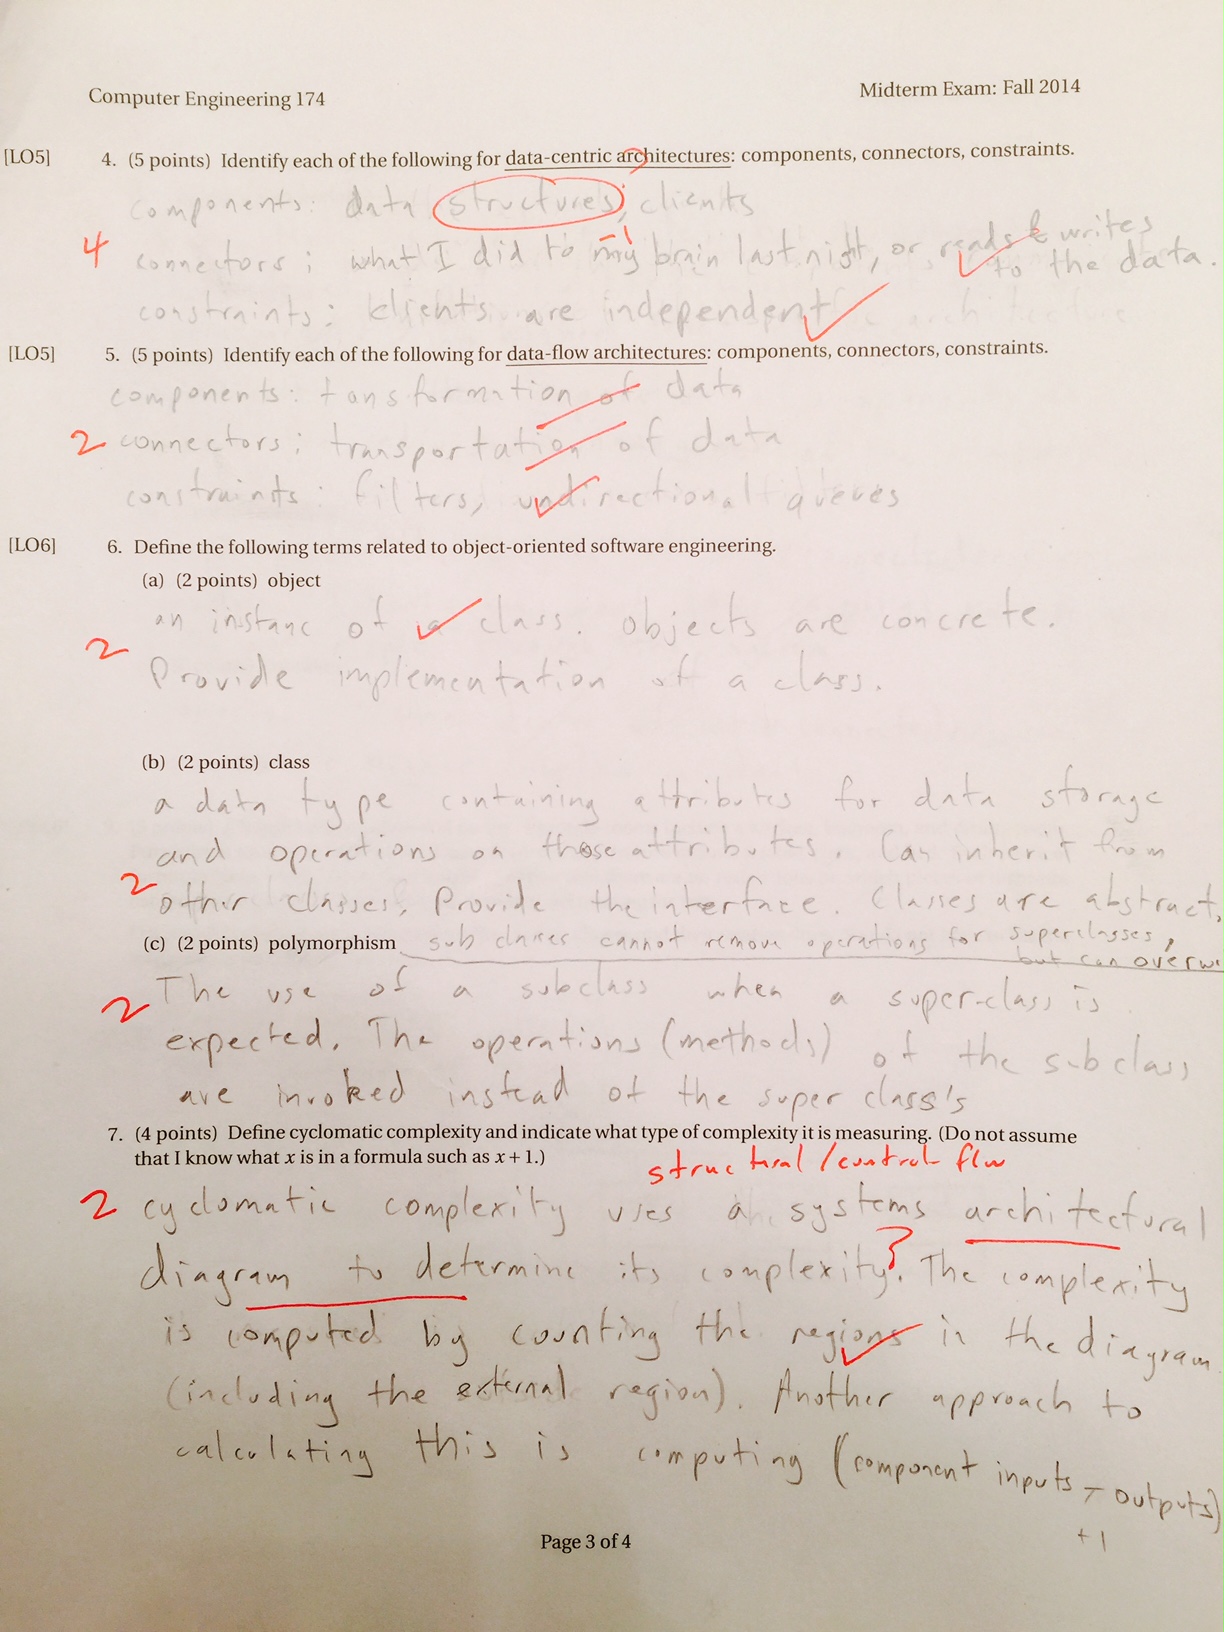 Computer Engineering 174
Midterm Exam: Fall 2014
[LO5] 4. (5 points) Identify each of the following for data-centric architectures: components, connectors, constraints.
components: data structures, clients
?
-1
4
connectors: what I did to my brain last night, or reads & writes
to the data.
constraints: klients are independent
[LO5] 5. (5 points) Identify each of the following for data-flow architectures: components, connectors, constraints.
components: tansformation of data
2 connectors: transportation of data
constraints: filters, undirectional queues
[LO6] 6. Define the following terms related to object-oriented software engineering.
(a) (2 points) object
an instanc of a class. objects are concrete.
2
Provide implementation of a class.
(b) (2 points) class
a data type containing attributes for data storage
and operations on those attributes. Can inherit from
2
other classes. Provide the interface. Classes are abstract,
(c) (2 points) polymorphism sub classes cannot remove operations for superclasses,
but can overw
2 The use of a subclass when a super-class is
expected. The operations (methods) of the subclass
are invoked instead of the super class's
7. (4 points) Define cyclomatic complexity and indicate what type of complexity it is measuring. (Do not assume
that I know what x is in a formula such as x + 1.)
structural/control flow
2 cyclomatic complexity uses a systems architectural
diagram to determine its complexity. The complexity
?
is computed by counting the regions in the diagram
(including the external region). Another approach to
calculating this is computing (component inputs - outputs)
+1
Page 3 of 4